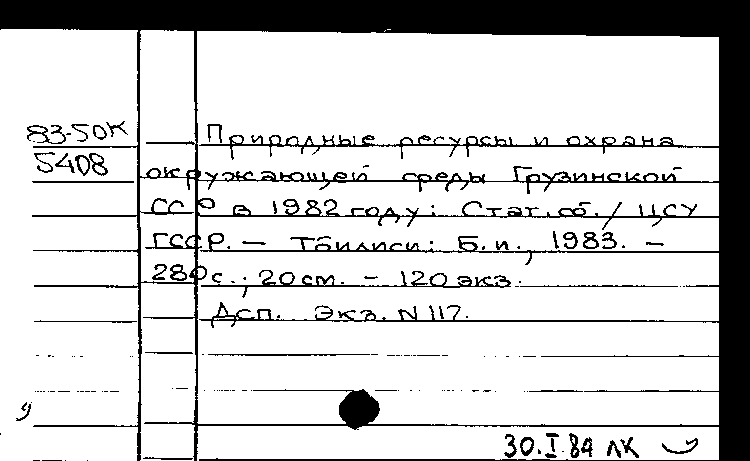 83-50К
5408
Природные ресурсы и охрана
окружающей среды Грузинской
ССР в 1982 году: Стат. сб. / ЦСУ
ГССР. – Тбилиси: Б.и., 1983. –
280 с.; 20 см. – 120 экз.
Дсп. Экз. N 117.
30.I.84 ЛК